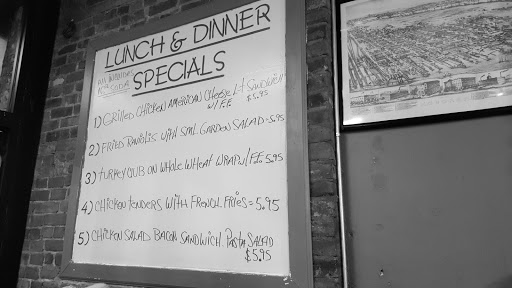 LUNCH & DINNER
SPECIALS
1) GRILLED CHICKEN AMERICAN CHEESE LT SANDWICH
W/FF $5.95
2) FRIED RAVIOLIS WITH SML GARDEN SALAD = 5.95
3) TURKEY CLUB ON WHOLE WHEAT WRAP W/F.F. 5.95
4) CHICKEN TENDERS WITH FRENCH FRIES = 5.95
5) CHICKEN SALAD BACON SANDWICH PASTA SALAD
$5.95